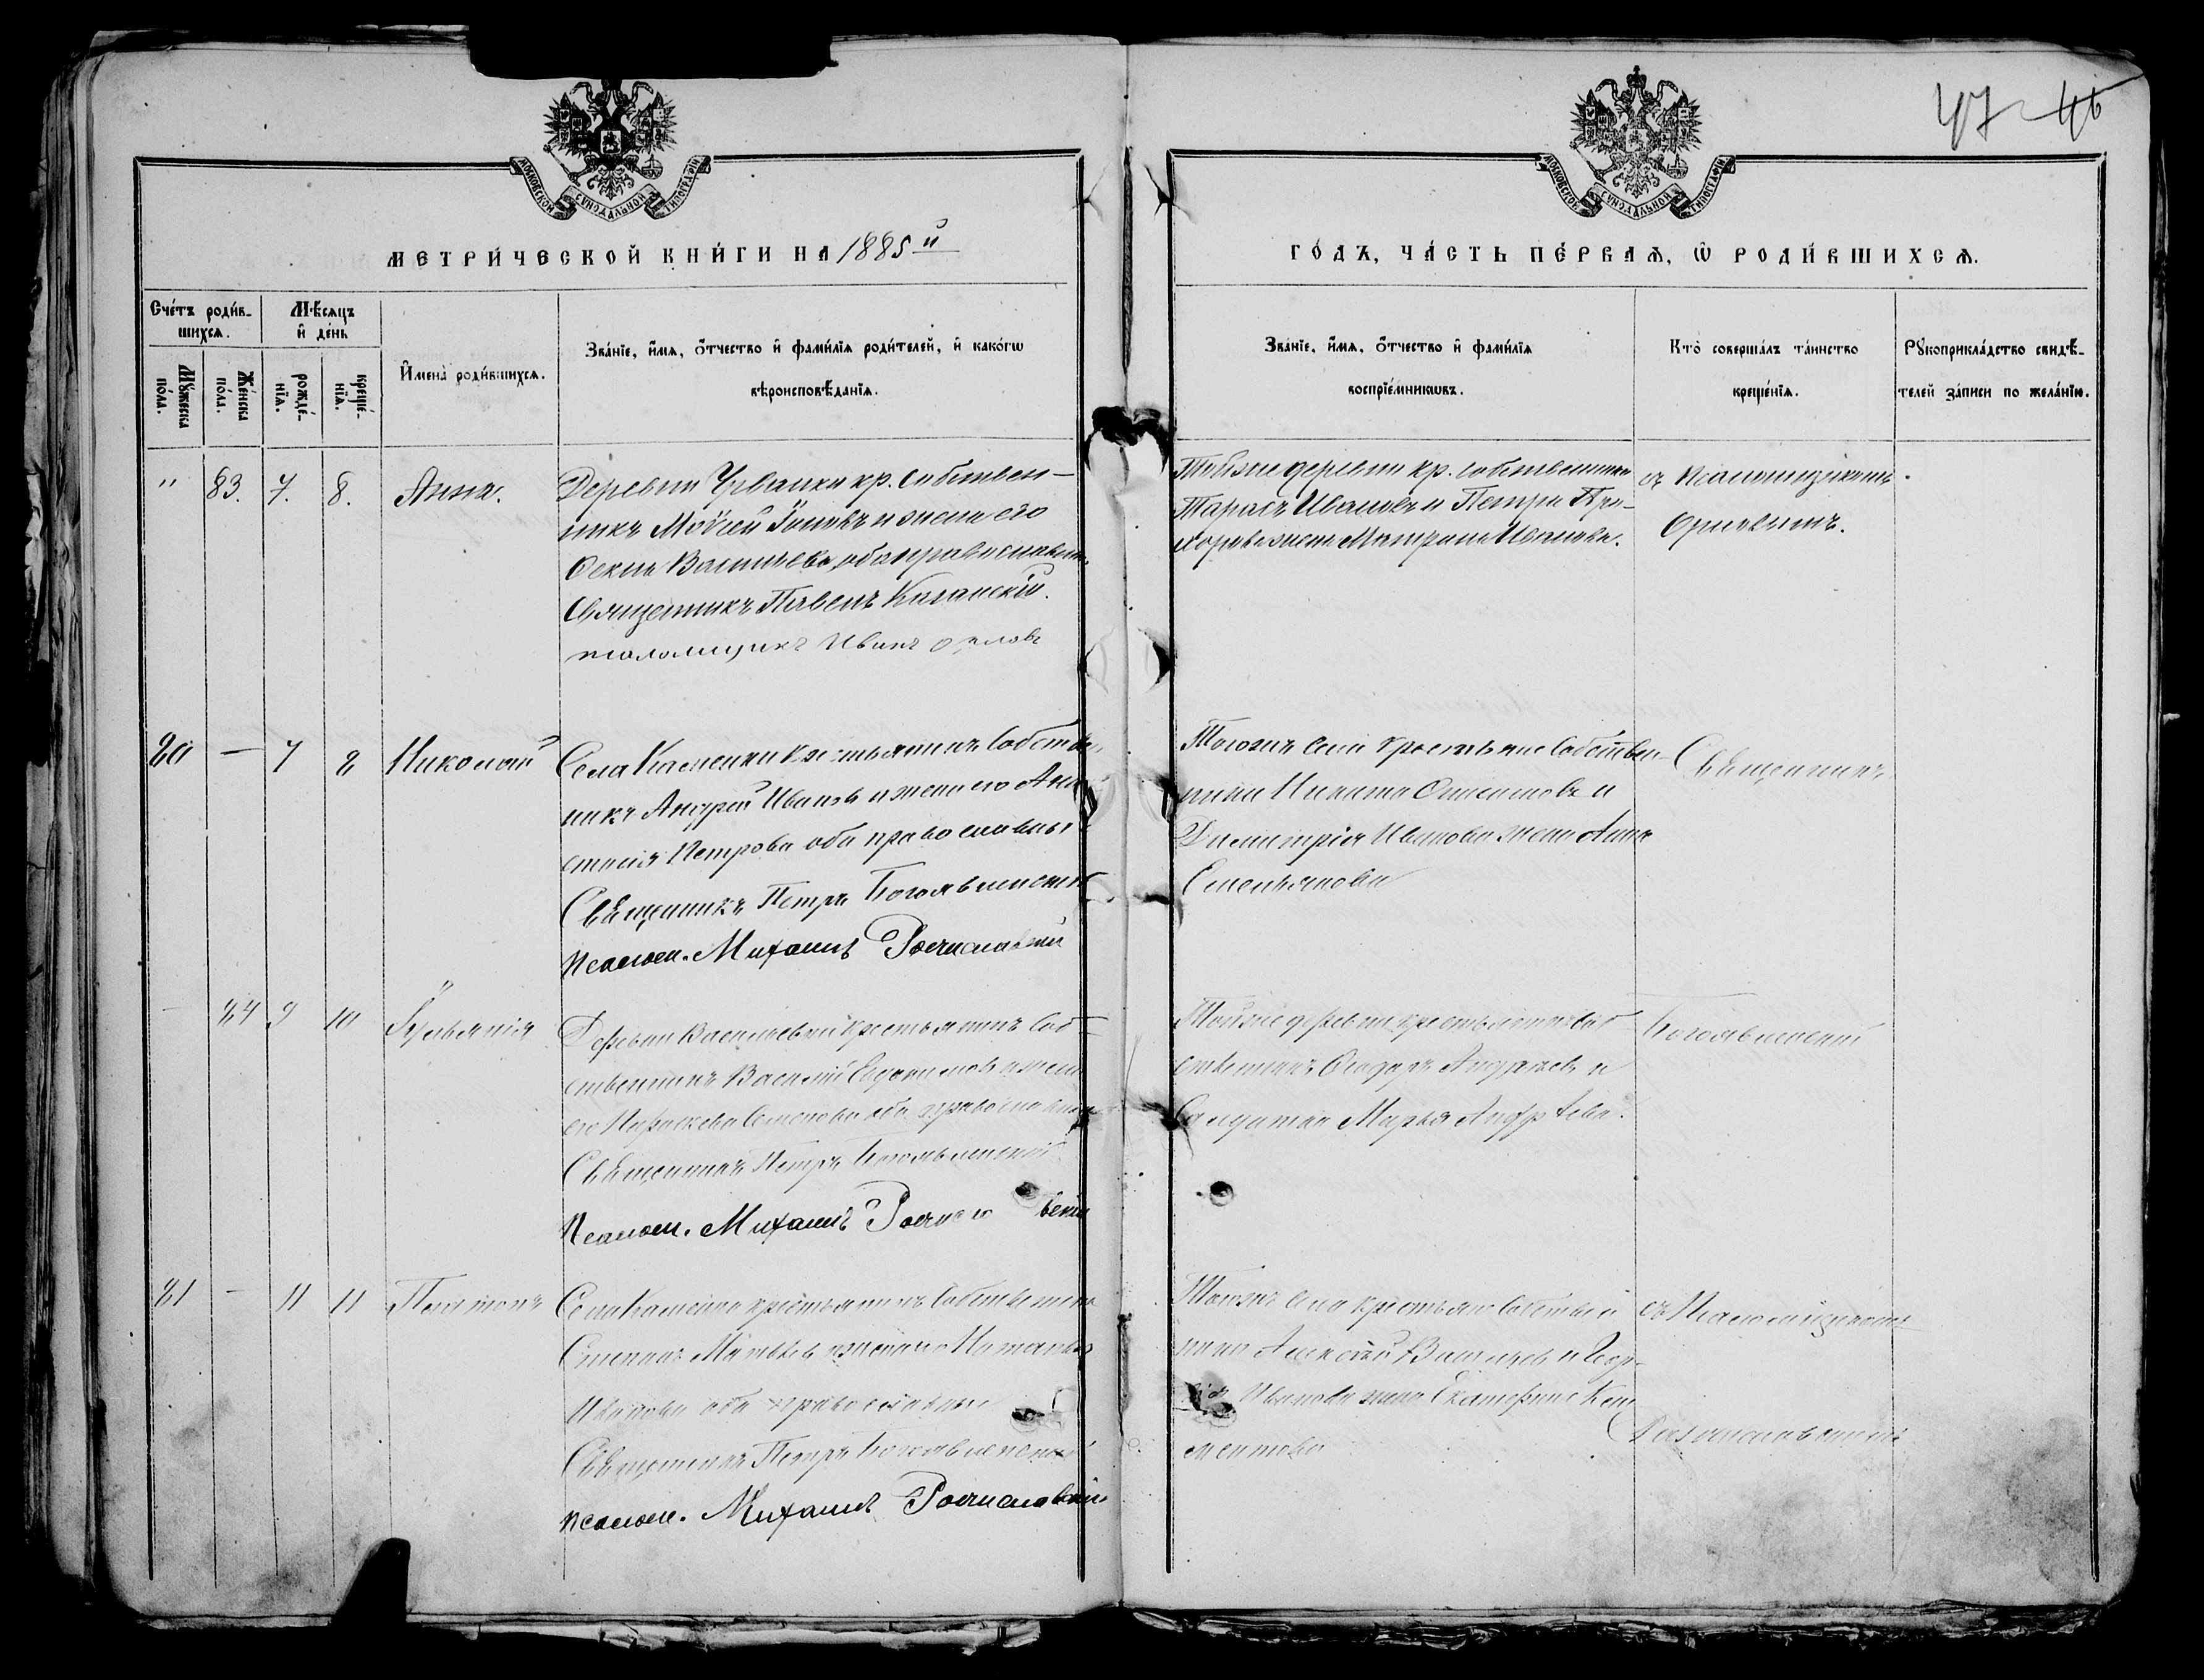 47 46
МОСКОВСКОЙ СѴНОДАЛЬНОЙ ТИПОГРАФІИ
МОСКОВСКОЙ СѴНОДАЛЬНОЙ ТИПОГРАФІИ
МЕТРИ́ЧЕСКОЙ КНИ́ГИ НА 1885й
ГО́ДЪ, ЧА́СТЬ ПЕ́РВАѦ, Ѡ РОДИ́ВШИХСѦ.
Сче́тъ роди́в-
шихсѧ.
Мꙋ́жеска
по́ла.
Же́нска
по́ла.
Мѣ́сѧцъ
и҆ де́нь
рожде́-
нїѧ.
креще́-
нїѧ.
И҆мена̀ роди́вшихсѧ.
Зва́нїе, и҆́мѧ, ѻ҆́тчество и҆ фами́лїѧ роди́телей, и҆ како́гѡ
вѣроисповѣ́данїѧ.
Зва́нїе, и҆́мѧ, ѻ҆́тчество и҆ фами́лїѧ
воспрїе́мникѡвъ.
Кто̀ соверша́лъ та́инство
креще́нїѧ.
Рꙋкоприкла́дство свидѣ́-
телей за́писи по жела́нїю.
" 83. 7. 8. Анна.
Деревни кр. собствен-
никъ Мойсей и жена его
Васильева, оба православн.
Священникъ Павелъ Казанскій.
псаломщикъ Иванъ Орловъ
Тойже деревни кр. собственники
Тарасъ Ивановъ и Петра При-
жена Матрона Иванова.
съ Псаломщикомъ
Орловымъ.
20 — 7 8 Николай
Села Каменки крестьянинъ собствен-
никъ Андрей Ивановъ и жена его Ана-
стасія Петрова оба православны
Священникъ Петръ Богоявленскій
псалом. Михаилъ
Тогожъ села крестьяне собствен-
ники Никита и
Димитрія Иванова жена Анна
Емельянова
Священникъ
— 24 9 10 Іульянія
Деревни Васильевки крестьянинъ соб-
ственникъ Василій Евдокимовъ и жена
его Параскева Семенова оба православны
Священникъ Петръ Богоявленскій
Псалом. Михаилъ
Тойже деревни крестьянинъ соб-
ственникъ Ѳеодоръ Андреевъ и
Солдатка Марья Андреева.
Богоявленскій
21 — 11 11 Платонъ
Села Каменки крестьянинъ собственникъ
Степанъ Матвѣевъ и жена его Наталья
Иванова оба православны
Священникъ Петръ Богоявленскій
псалом. Михаилъ
Тогожъ села крестьяне собствен-
ники Алексѣй Васильевъ и Геор-
гія Иванова жена Екатерина Кли-
ментова
съ Псаломщикомъ